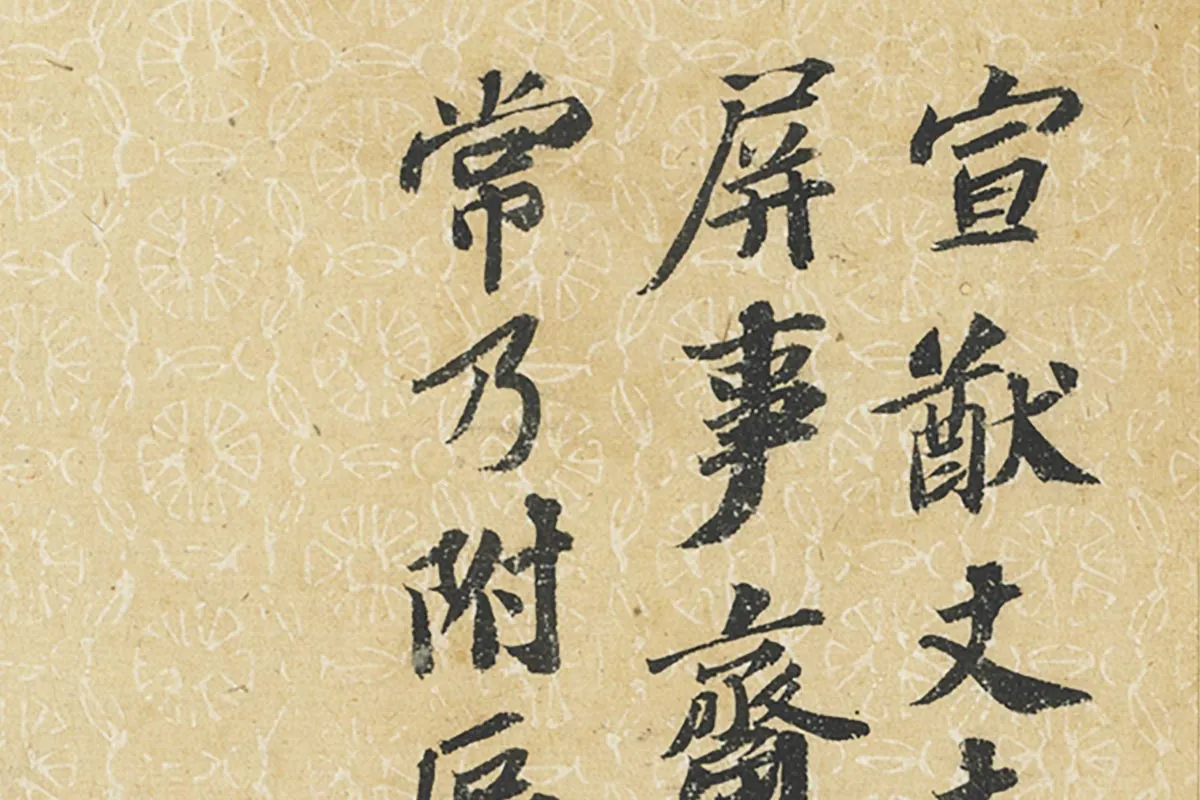 宣猷丈
屏事
常乃附